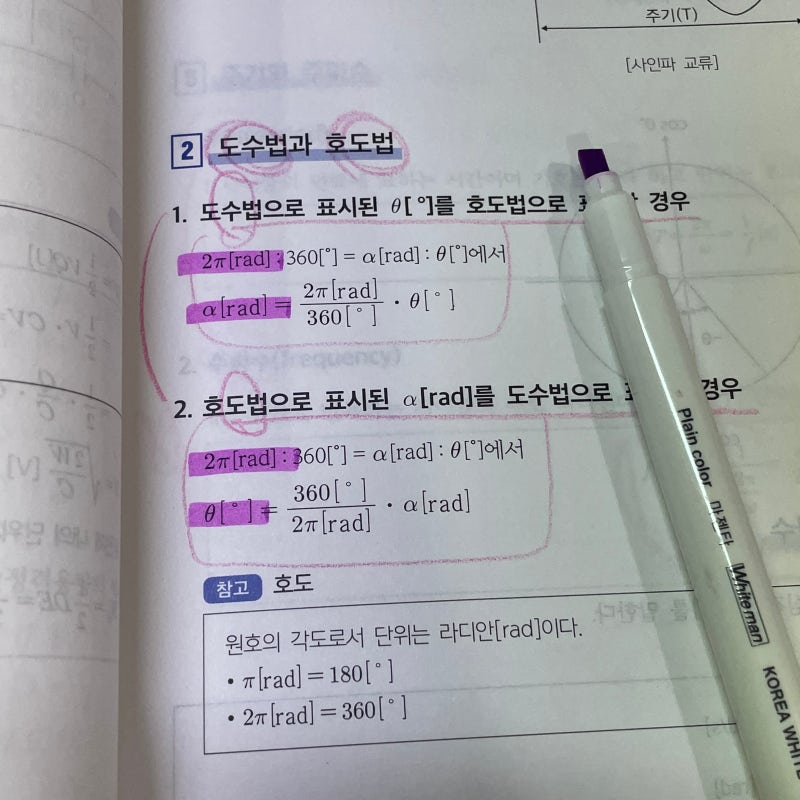 주기(T)
[사인파 교류]
2 도수법과 호도법
1. 도수법으로 표시된 θ[°]를 호도법으로 경우
2π[rad] : 360[°] = α[rad] : θ[°]에서
α[rad] = 2π[rad] / 360[°] · θ[°]
2. 호도법으로 표시된 α[rad]를 도수법으로 경우
2π[rad] : 360[°] = α[rad] : θ[°]에서
θ[°] = 360[°] / 2π[rad] · α[rad]
참고 호도
원호의 각도로서 단위는 라디안[rad]이다.
• π[rad] = 180[°]
• 2π[rad] = 360[°]
Plain color 마젠타 Whiteman KOREA WHITE